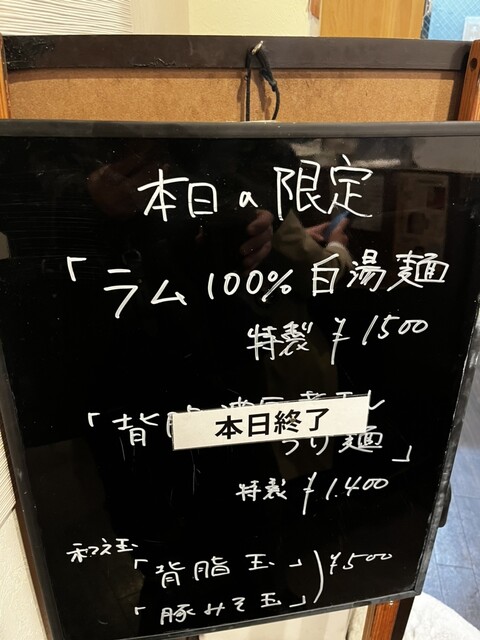 本日の限定
「ラム100%白湯麺
特製 ¥1500
「背脂
本日終了
つけ麺」
特製 ¥1.400
和え玉
「背脂玉」
「豚みそ玉」
¥500